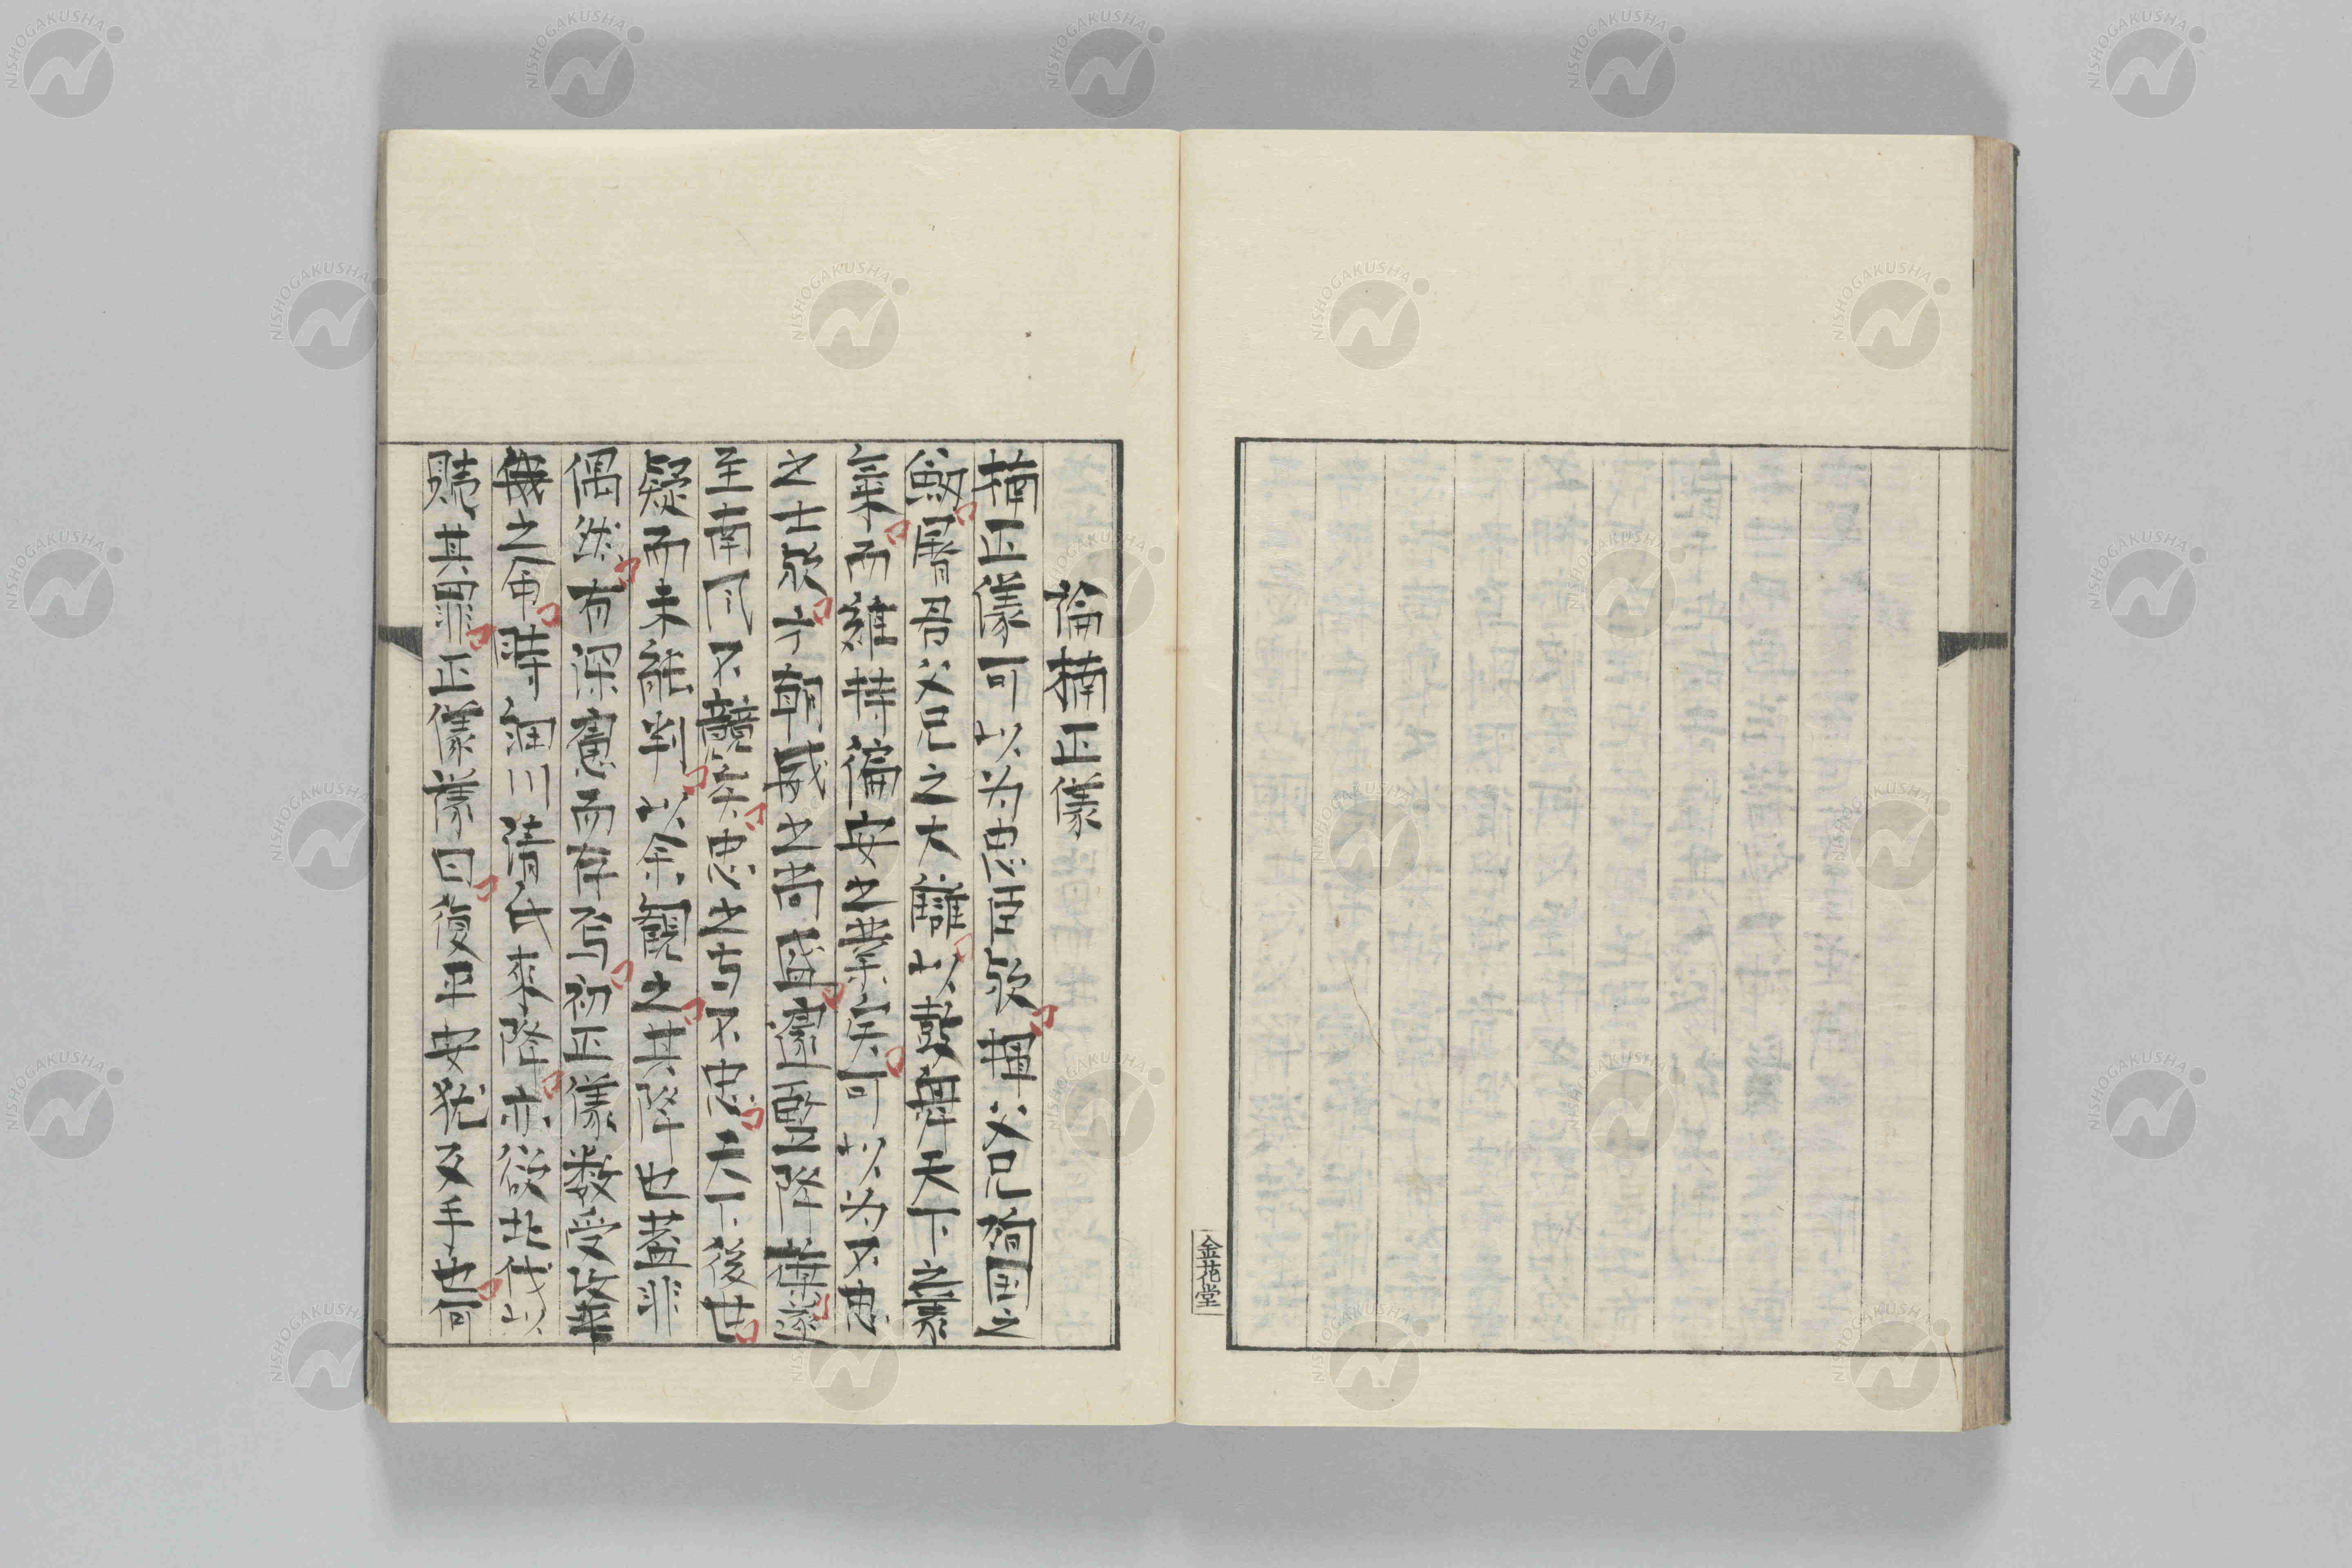 金花堂
論楠正儀
楠正儀可以为忠臣歟揮父兄殉国之
劔屠吾父兄之大讎以鼓舞天下之義
氣而維持偏安之業矣可以为不忠
之士歟方朝威之尚盛遽竪降幡遂
至南风不競矣忠之与不忠天下後世
疑而未能判以余觀之其降也蓋非
偶然有深慮而存焉初正儀数受攻
之時細川清氏来降亦欲北伐以
贖其罪正儀議曰復平安犹反手也何